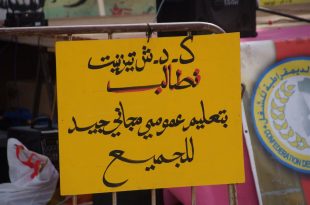 ك.د.ش تيزنيت
تطالب
بتعليم عمومي مجاني جيد
للجميع
الديمقراطية للشغل
CONFEDERATION DE